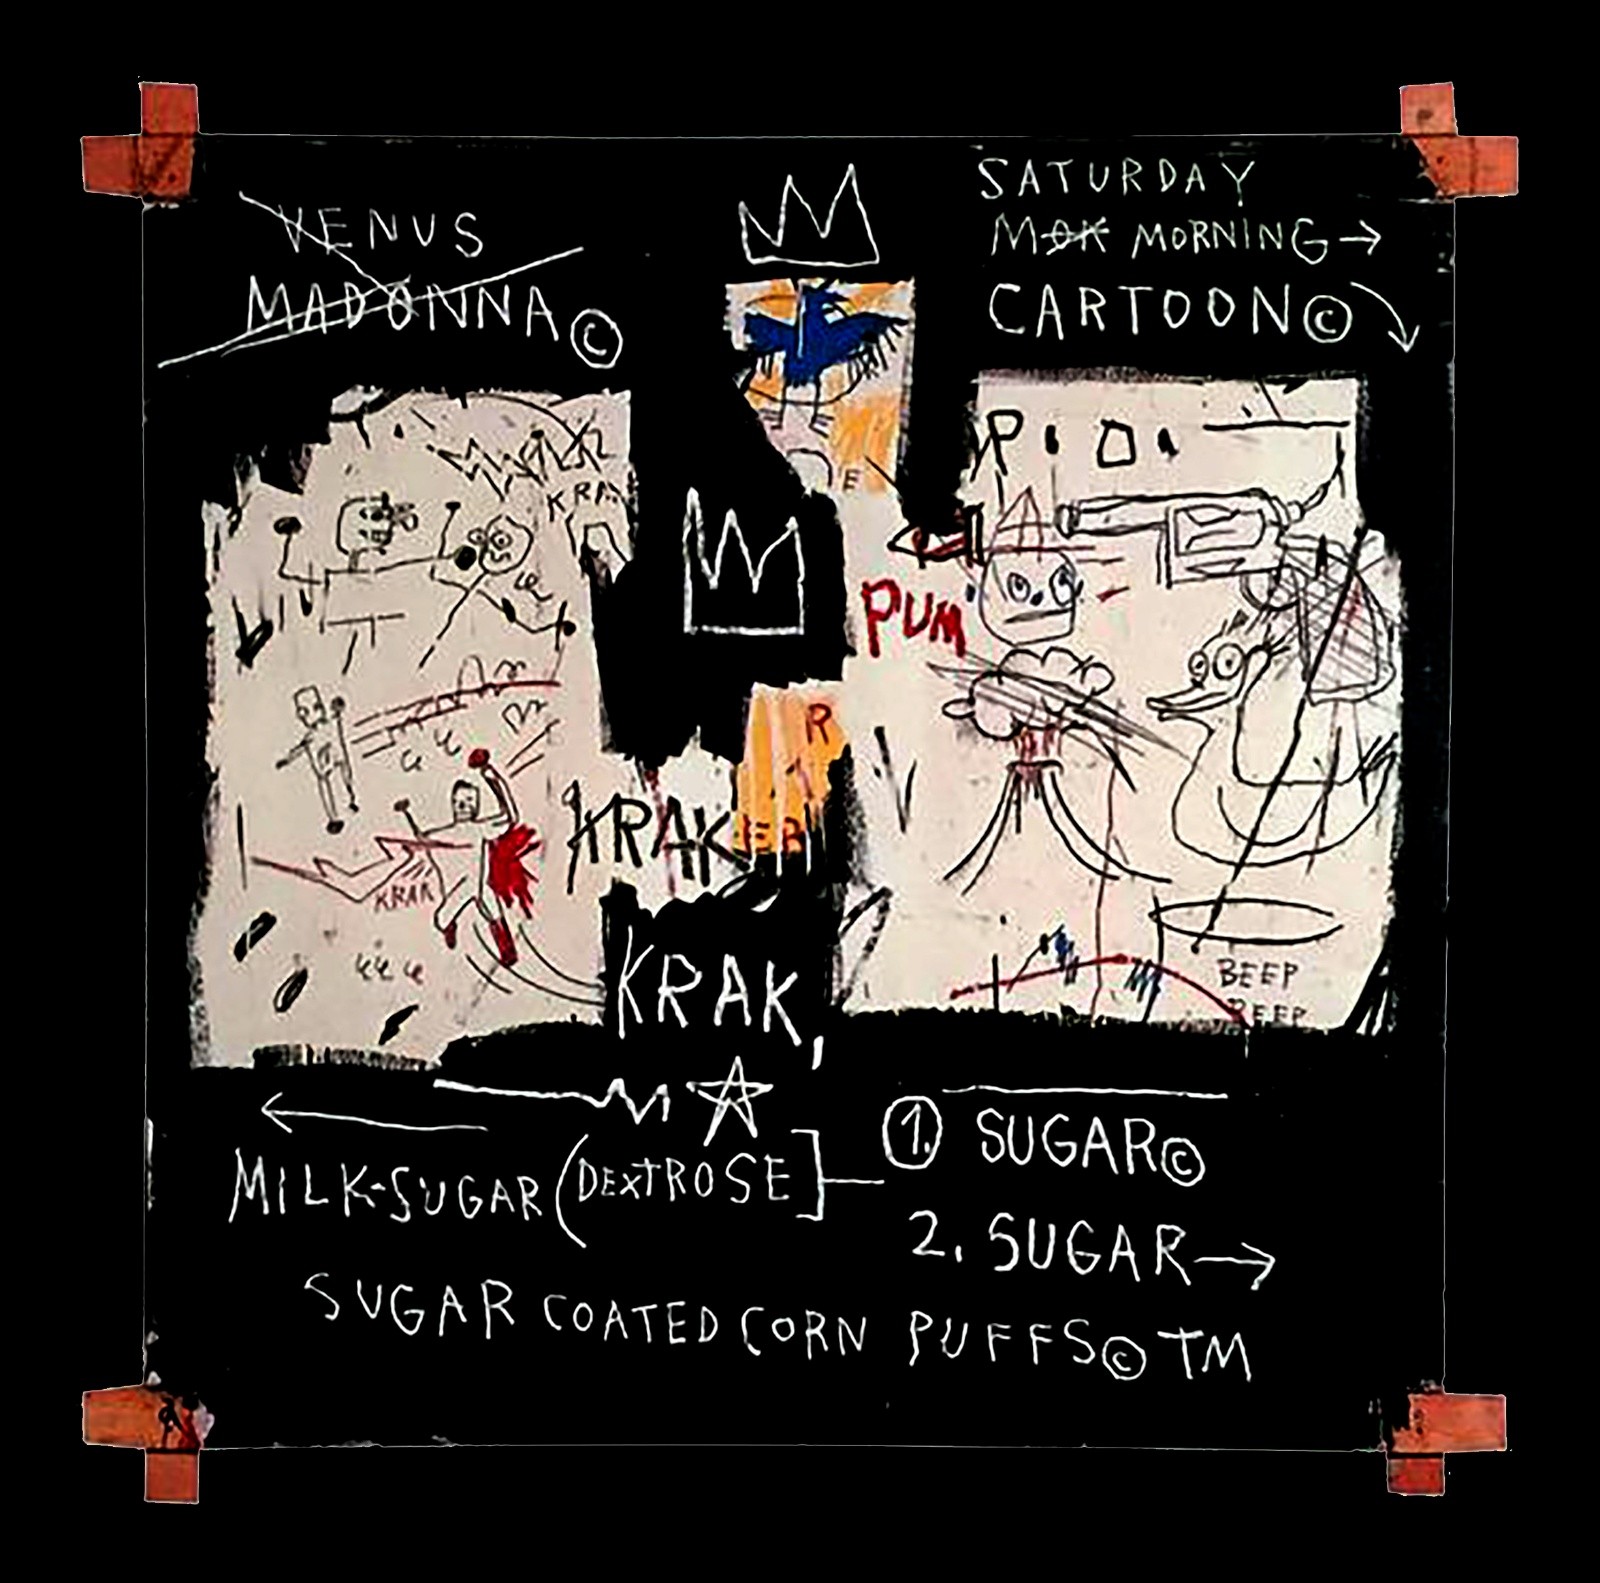 VENUS
MADONNA©
SATURDAY
MOR MORNING→
CARTOON©
P.O.
KRA
E
PUM
R
KRAKER
KRAK
KRAK,
BEEP
BEEP
MILK-SUGAR (DEXTROSE]
1. SUGAR©
2. SUGAR→
SUGAR COATED CORN PUFFS© TM